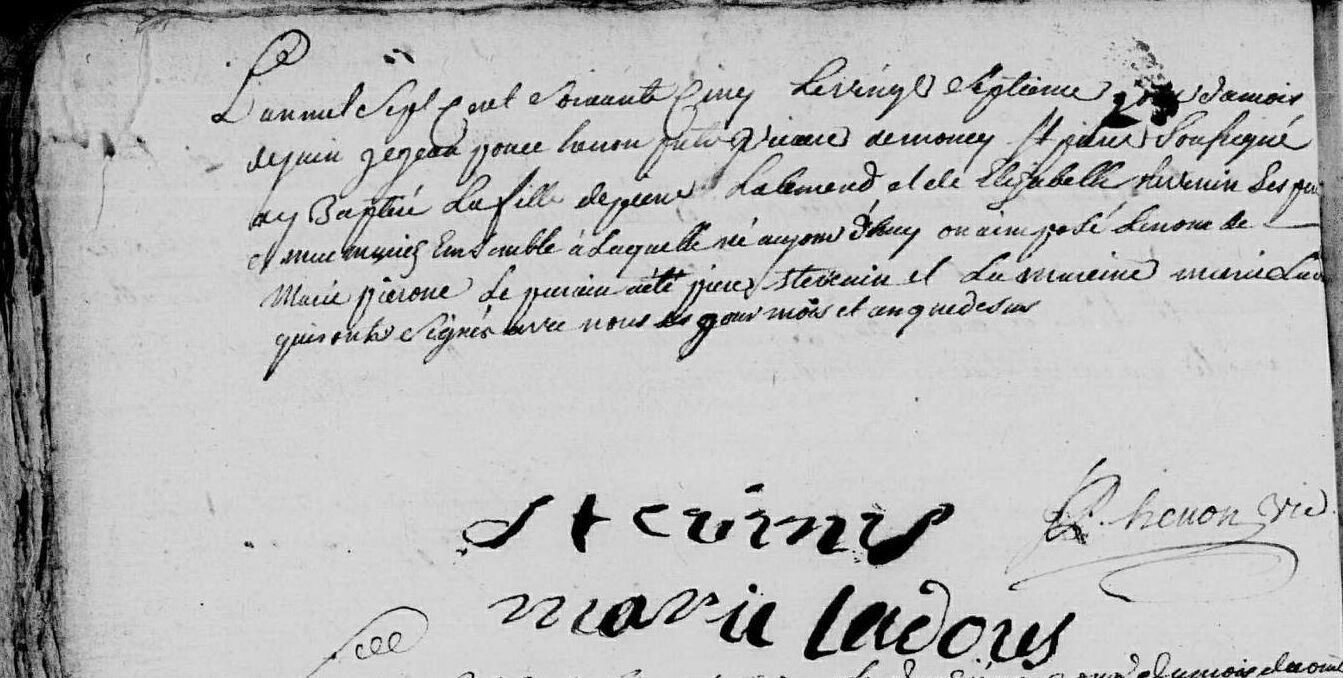 L'an mil Sept Cent Soixante Cinq Le vingt Septieme jour du mois
de juin je jean ponce henon pretre vicaire de moncy St pierre Soussigné
ay Baptisé La fille de piere Lalemend et de Elizabelle Stevenin Ses pere
et mere mariés Ensemble à Laquelle né aujourd'huy on a imposé Le nom de
Marie pierone Le parain a été piere Stevenin et La mareine marie Lad
qui ont Signés avec nous les jour mois et an que desus
Stevenis
henon vic
marie ladoues